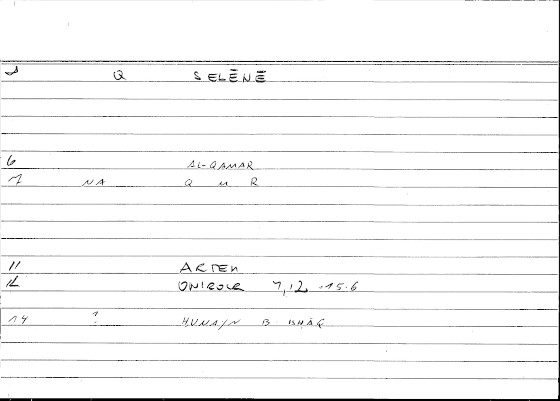 Q SELĒNĒ
6 AL-QAMAR
7 NA Q M R
11 ARTEM
12 ONIROCR 7,12 -15.6
14 ? HUNAYN B ISHĀQ